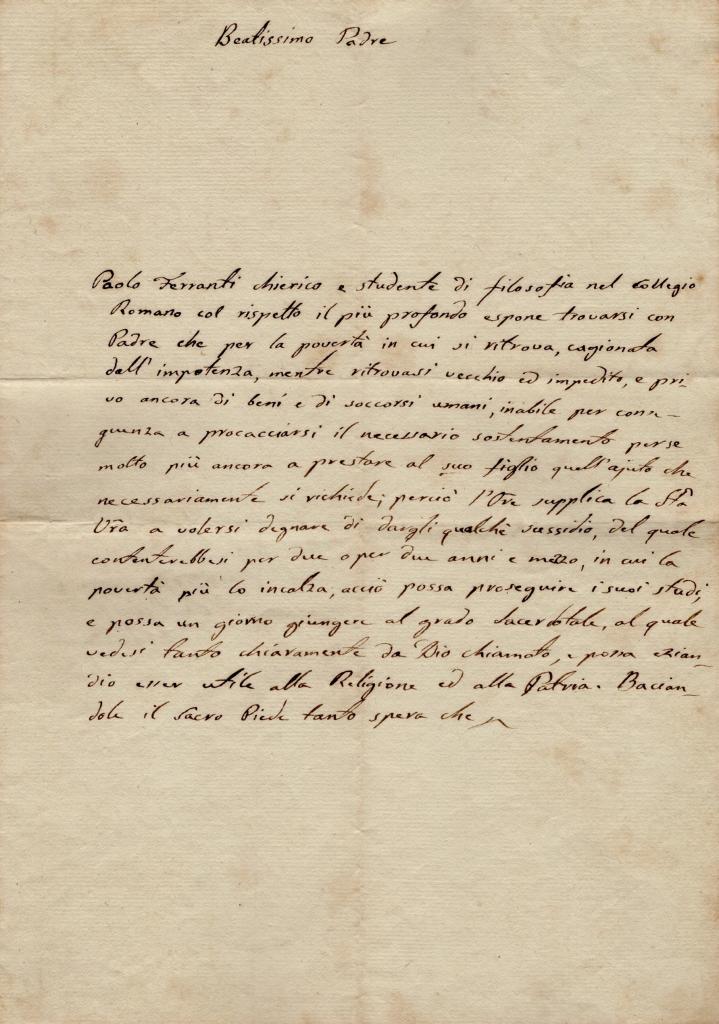 Beatissimo Padre
Paolo Ferranti chierico e studente di filosofia nel Collegio
Romano col rispetto il più profondo espone trovarsi con
Padre che per la povertà in cui si ritrova, cagionata
dall' impotenza, mentre ritrovasi vecchio ed impedito, e pri-
vo ancora di beni e di soccorsi umani, inabile per conse-
guenza a procacciarsi il necessario sostentamento per se
molto più ancora a prestare al suo figlio quell' ajuto che
necessariamente si richiede; perciò l'Ore supplica la Sta
Vra a volersi degnare di dargli qualchè sussidio, del quale
contenterebbesi per due o per due anni e mezzo, in cui la
povertà più lo incalza, acciò possa proseguire i suoi studj,
e possa un giorno giungere al grado Sacerdotale, al quale
vedesi tanto chiaramente da Dio chiamato, e possa ezian-
dio esser utile alla Religione ed alla Patria. Bacian-
dole il Sacro Piede tanto spera che